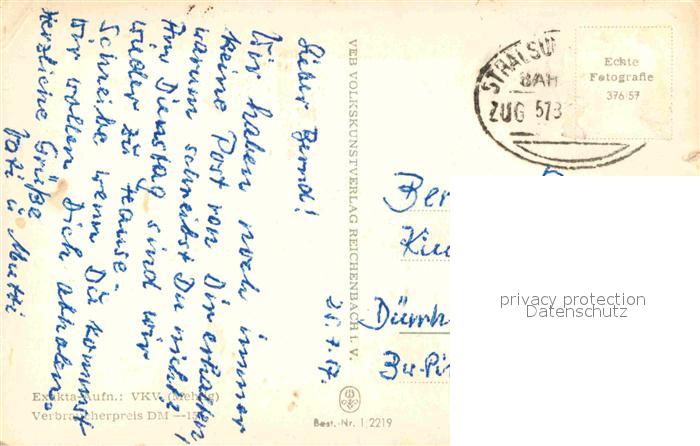 Lieber Bernd!
Wir haben noch immer
keine Post von Dir erhalten,
warum schreibst Du nicht?
Am Dienstag sind wir
wieder zu Hause.
Schreibe wenn Du kommst
wir wollen Dich abholen.
Herzliche Grüße
Vati u Mutti
25.7.57.
VEB VOLKSKUNSTVERLAG REICHENBACH i. V.
STRALSU
BAH
ZUG 573
Echte
Fotografie
376/57
Ber
Kin
Dürrh
privacy protection
Datenschutz
Exakta-Aufn.: VKV
Verbraucherpreis DM
Best.-Nr. 1,2219